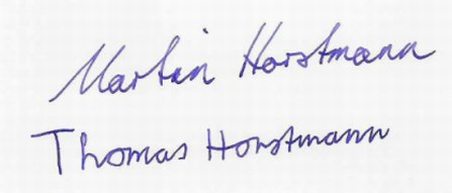 Martin Horstmann
Thomas Horstmann